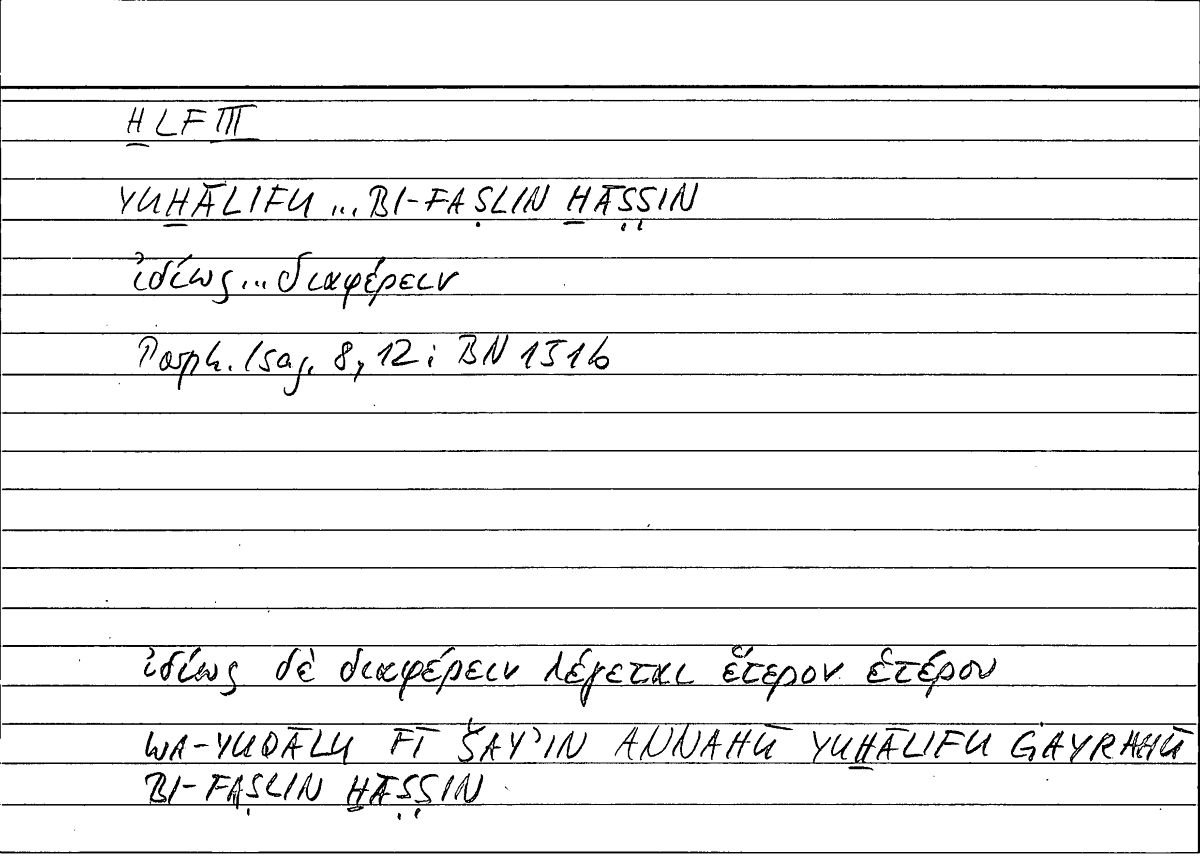 ḪLF III
YUḪĀLIFU ... BI-FAṢLIN ḪĀṢṢIN
ἰδίως ... διαφέρειν
Porph. Isag. 8, 12 ; BN 151b
ἰδίως δὲ διαφέρειν λέγεται ἕτερον ἑτέρου
WA-YUQĀLU FĪ ŠAY'IN ANNAHŪ YUḪĀLIFU ĠAYRAHŪ
BI-FAṢLIN ḪĀṢṢIN